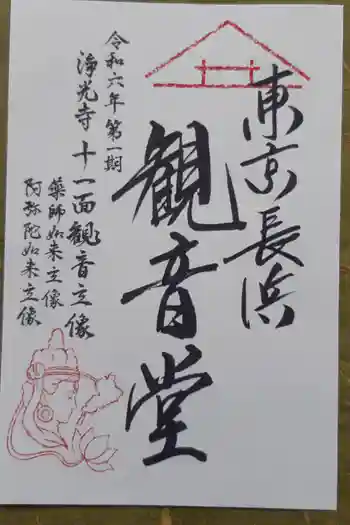 東京長浜
観音堂
令和六年第一期
浄光寺十一面観音立像
薬師如来立像
阿弥陀如来立像